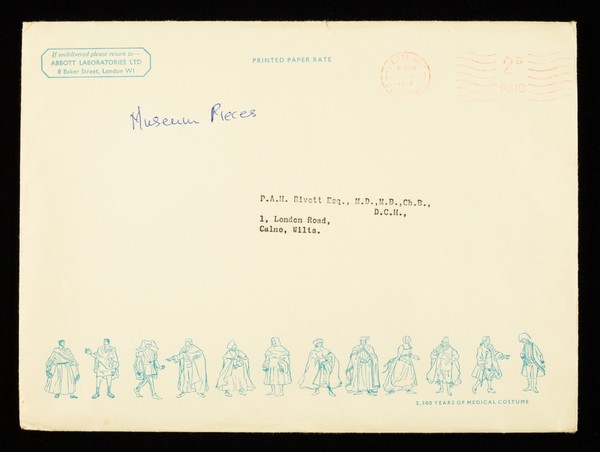 If undelivered please return to—
ABBOTT LABORATORIES LTD
8 Baker Street, London W1
PRINTED PAPER RATE
2D
PAID
Museum Pieces
P.A.H. Rivett Esq., M.D.,M.B.,Ch.B.,
D.C.H.,
1, London Road,
Calne, Wilts.
2,300 YEARS OF MEDICAL COSTUME